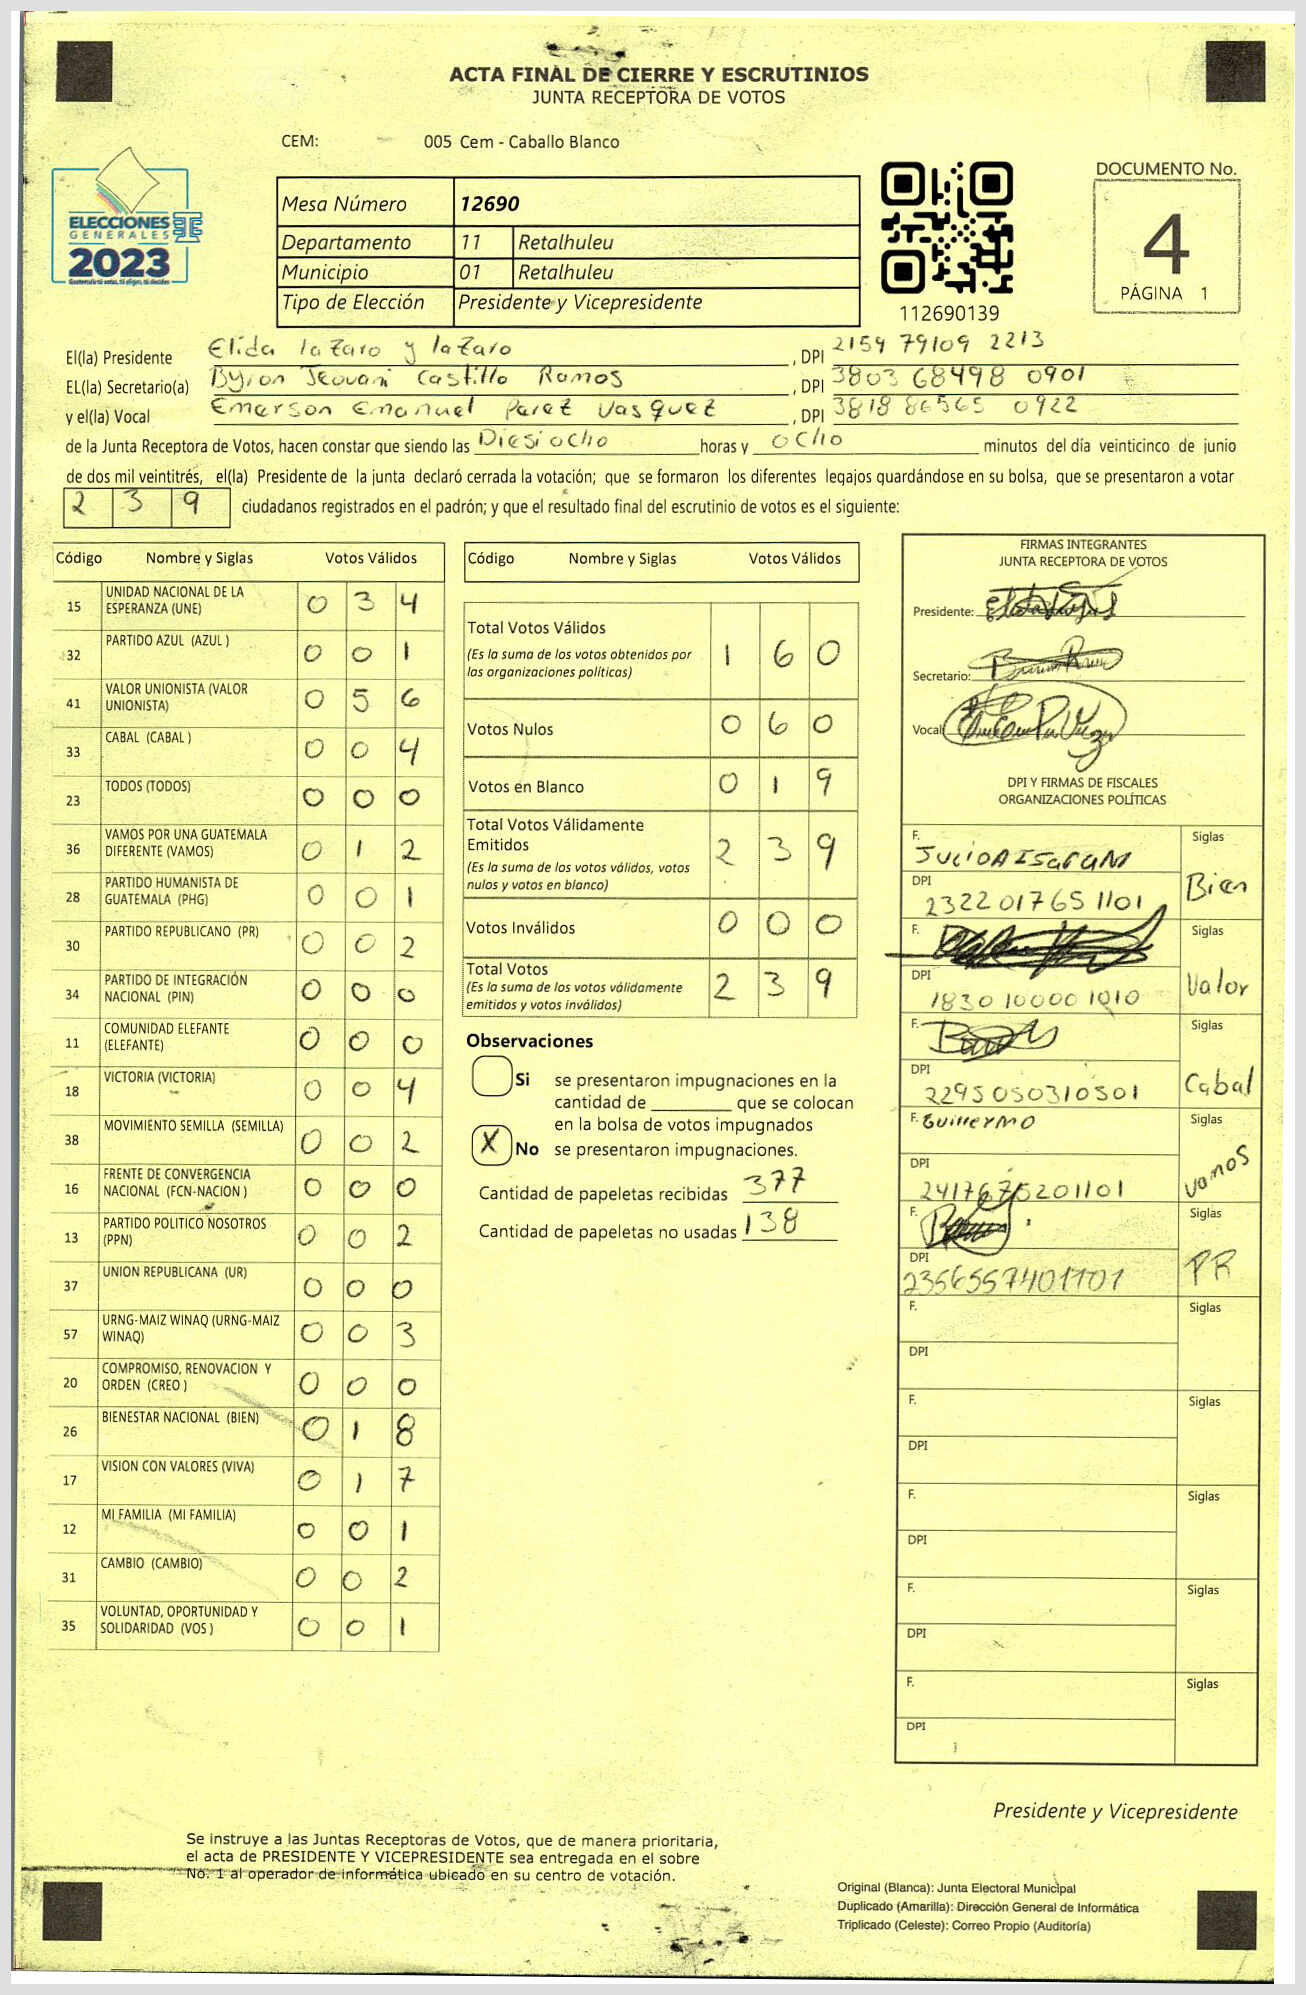 ACTA FINAL DE CIERRE Y ESCRUTINIOS
JUNTA RECEPTORA DE VOTOS
CEM: 005 Cem - Caballo Blanco
ELECCIONES
GENERALES
2023
Guatemala tú votas, tú eliges, tú decides
TSE
Mesa Número 12690
Departamento 11 Retalhuleu
Municipio 01 Retalhuleu
Tipo de Elección Presidente y Vicepresidente
112690139
DOCUMENTO No.
4
PÁGINA 1
El(la) Presidente Elida lazaro y lazaro , DPI 2154 79109 2213
EL(la) Secretario(a) Byron Jeovani Castillo Ramos , DPI 3803 68498 0901
y el(la) Vocal Emerson Emanuel Perez Vasquez , DPI 3818 86565 0922
de la Junta Receptora de Votos, hacen constar que siendo las Diesiocho horas y ocho minutos del día veinticinco de junio
de dos mil veintitrés, el(la) Presidente de la junta declaró cerrada la votación; que se formaron los diferentes legajos guardándose en su bolsa, que se presentaron a votar
2 3 9 ciudadanos registrados en el padrón; y que el resultado final del escrutinio de votos es el siguiente:
Código Nombre y Siglas Votos Válidos
15 UNIDAD NACIONAL DE LA ESPERANZA (UNE) 0 3 4
32 PARTIDO AZUL (AZUL ) 0 0 1
41 VALOR UNIONISTA (VALOR UNIONISTA) 0 5 6
33 CABAL (CABAL ) 0 0 4
23 TODOS (TODOS) 0 0 0
36 VAMOS POR UNA GUATEMALA DIFERENTE (VAMOS) 0 1 2
28 PARTIDO HUMANISTA DE GUATEMALA (PHG) 0 0 1
30 PARTIDO REPUBLICANO (PR) 0 0 2
34 PARTIDO DE INTEGRACIÓN NACIONAL (PIN) 0 0 0
11 COMUNIDAD ELEFANTE (ELEFANTE) 0 0 0
18 VICTORIA (VICTORIA) 0 0 4
38 MOVIMIENTO SEMILLA (SEMILLA) 0 0 2
16 FRENTE DE CONVERGENCIA NACIONAL (FCN-NACION ) 0 0 0
13 PARTIDO POLITICO NOSOTROS (PPN) 0 0 2
37 UNION REPUBLICANA (UR) 0 0 0
57 URNG-MAIZ WINAQ (URNG-MAIZ WINAQ) 0 0 3
20 COMPROMISO, RENOVACION Y ORDEN (CREO ) 0 0 0
26 BIENESTAR NACIONAL (BIEN) 0 1 8
17 VISION CON VALORES (VIVA) 0 1 7
12 MI FAMILIA (MI FAMILIA) 0 0 1
31 CAMBIO (CAMBIO) 0 0 2
35 VOLUNTAD, OPORTUNIDAD Y SOLIDARIDAD (VOS ) 0 0 1
Código Nombre y Siglas Votos Válidos
Total Votos Válidos 1 6 0
(Es la suma de los votos obtenidos por
las organizaciones políticas)
Votos Nulos 0 6 0
Votos en Blanco 0 1 9
Total Votos Válidamente
Emitidos 2 3 9
(Es la suma de los votos válidos, votos
nulos y votos en blanco)
Votos Inválidos 0 0 0
Total Votos 2 3 9
(Es la suma de los votos válidamente
emitidos y votos inválidos)
Observaciones
Si se presentaron impugnaciones en la
cantidad de ________ que se colocan
en la bolsa de votos impugnados
X No se presentaron impugnaciones.
Cantidad de papeletas recibidas 377
Cantidad de papeletas no usadas 138
FIRMAS INTEGRANTES
JUNTA RECEPTORA DE VOTOS
Presidente:
Secretario:
Vocal:
DPI Y FIRMAS DE FISCALES
ORGANIZACIONES POLÍTICAS
F. Siglas
DPI 2322017651101 Bien
F. Siglas
DPI 1830100001010 Valor
F. Siglas
DPI 2295050310501 Cabal
F. Guillermo Siglas
DPI 2417675201101 vamos
F. Siglas
DPI 2356557401101 PR
F. Siglas
DPI
F. Siglas
DPI
F. Siglas
DPI
F. Siglas
DPI
F. Siglas
DPI
Presidente y Vicepresidente
Se instruye a las Juntas Receptoras de Votos, que de manera prioritaria,
el acta de PRESIDENTE Y VICEPRESIDENTE sea entregada en el sobre
No. 1 al operador de informática ubicado en su centro de votación.
Original (Blanca): Junta Electoral Municipal
Duplicado (Amarilla): Dirección General de Informática
Triplicado (Celeste): Correo Propio (Auditoría)